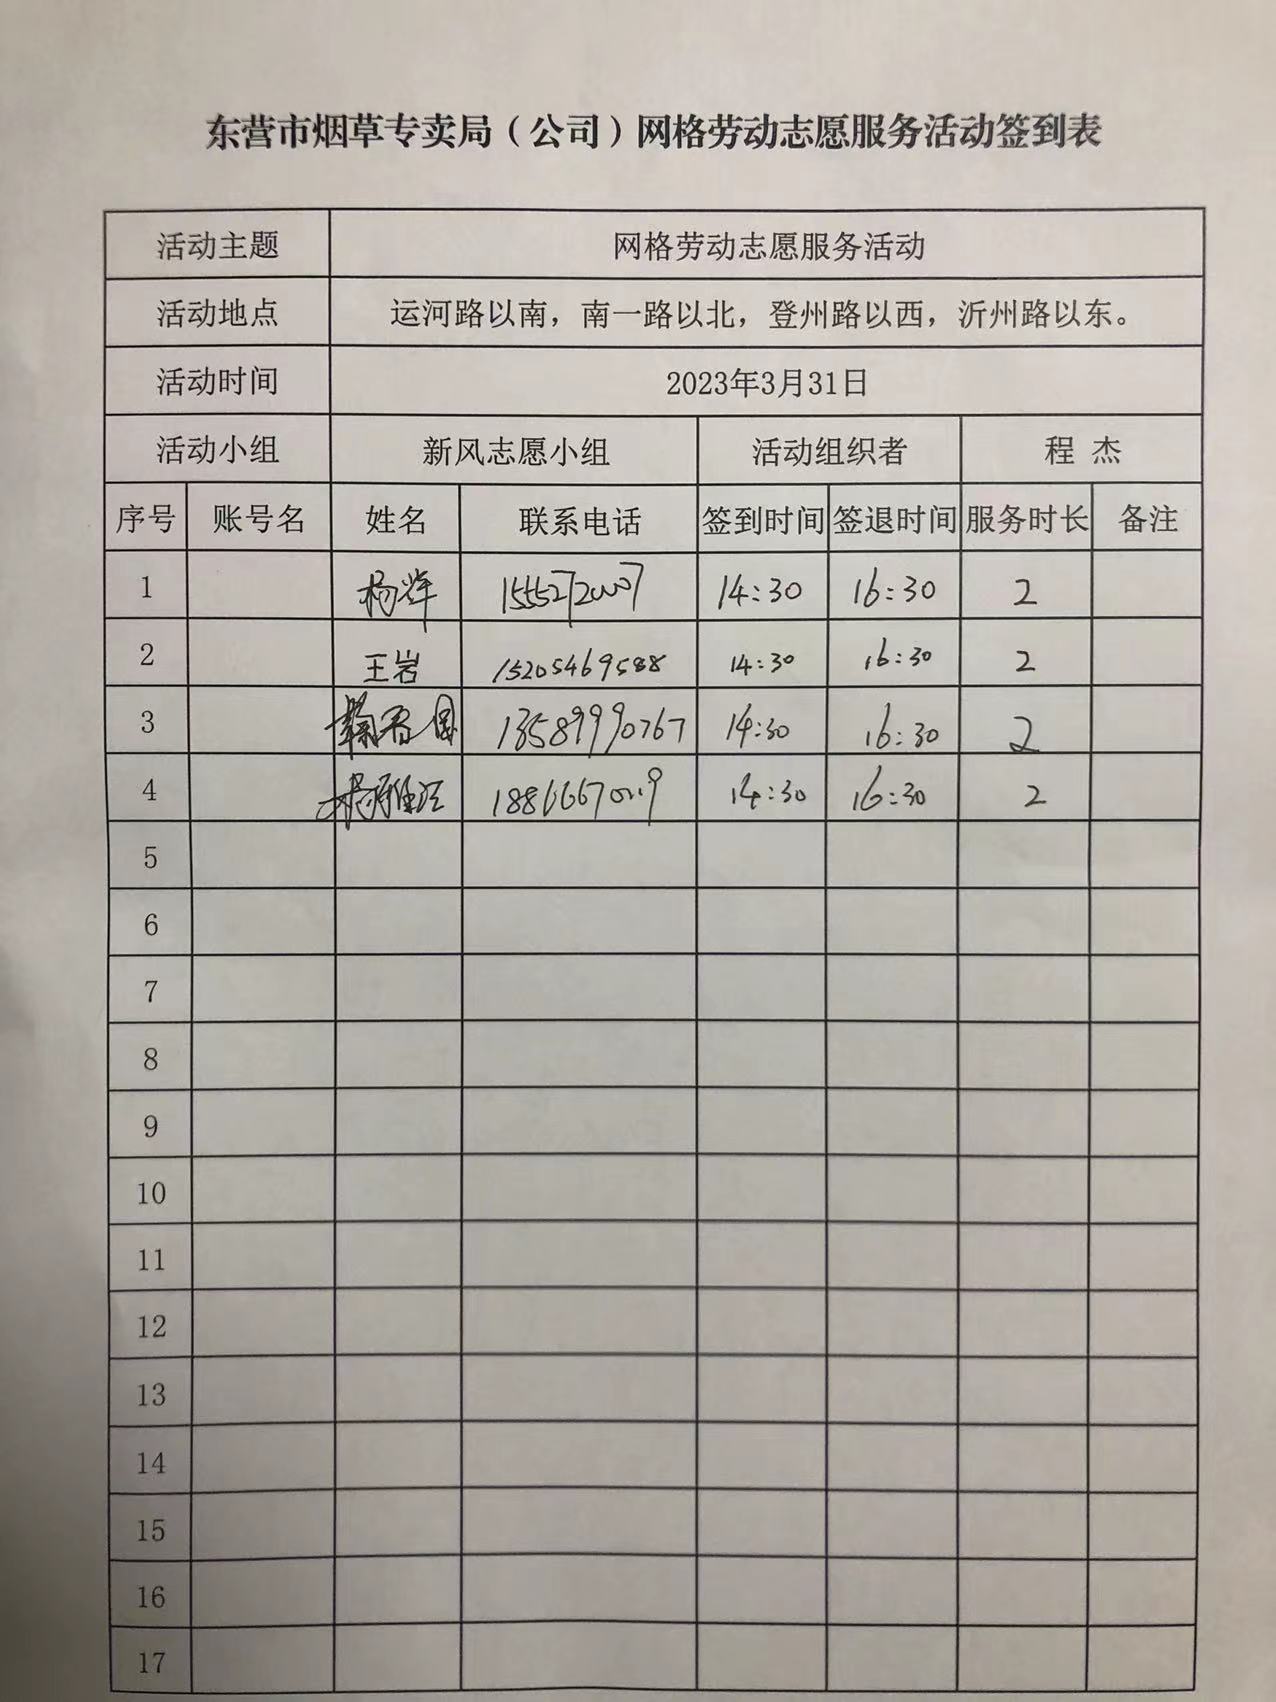 东营市烟草专卖局（公司）网格劳动志愿服务活动签到表
活动主题 网格劳动志愿服务活动
活动地点 运河路以南，南一路以北，登州路以西，沂州路以东。
活动时间 2023年3月31日
活动小组 新风志愿小组 活动组织者 程 杰
序号 账号名 姓名 联系电话 签到时间 签退时间 服务时长 备注
1 杨辉 15552720007 14:30 16:30 2
2 王岩 15205469588 14:30 16:30 2
3 13589990767 14:30 16:30 2
4 14:30 16:30 2
5
6
7
8
9
10
11
12
13
14
15
16
17